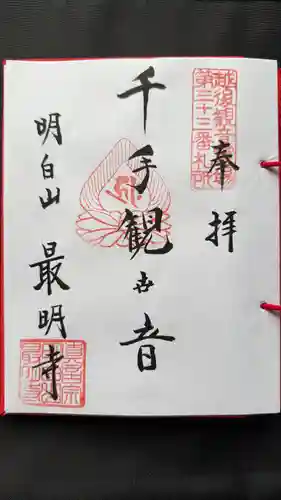 奉拝
越後観音霊場
第三十三番札所
千手観世音
明白山 最明寺